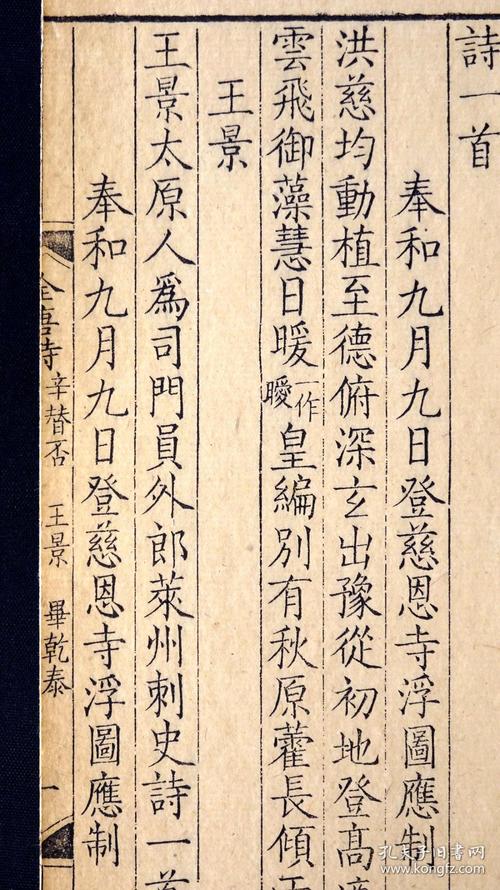 詩一首
奉和九月九日登慈恩寺浮圖應制
洪慈均動植至德俯深玄出豫從初地登高
雲飛御藻慧日暖一作曖皇編別有秋原藿長傾
王景
王景太原人爲司門員外郎萊州刺史詩一首
奉和九月九日登慈恩寺浮圖應制
全唐詩 辛替否 王景 畢乾泰 一
孔夫子旧书网
www.kongfz.com